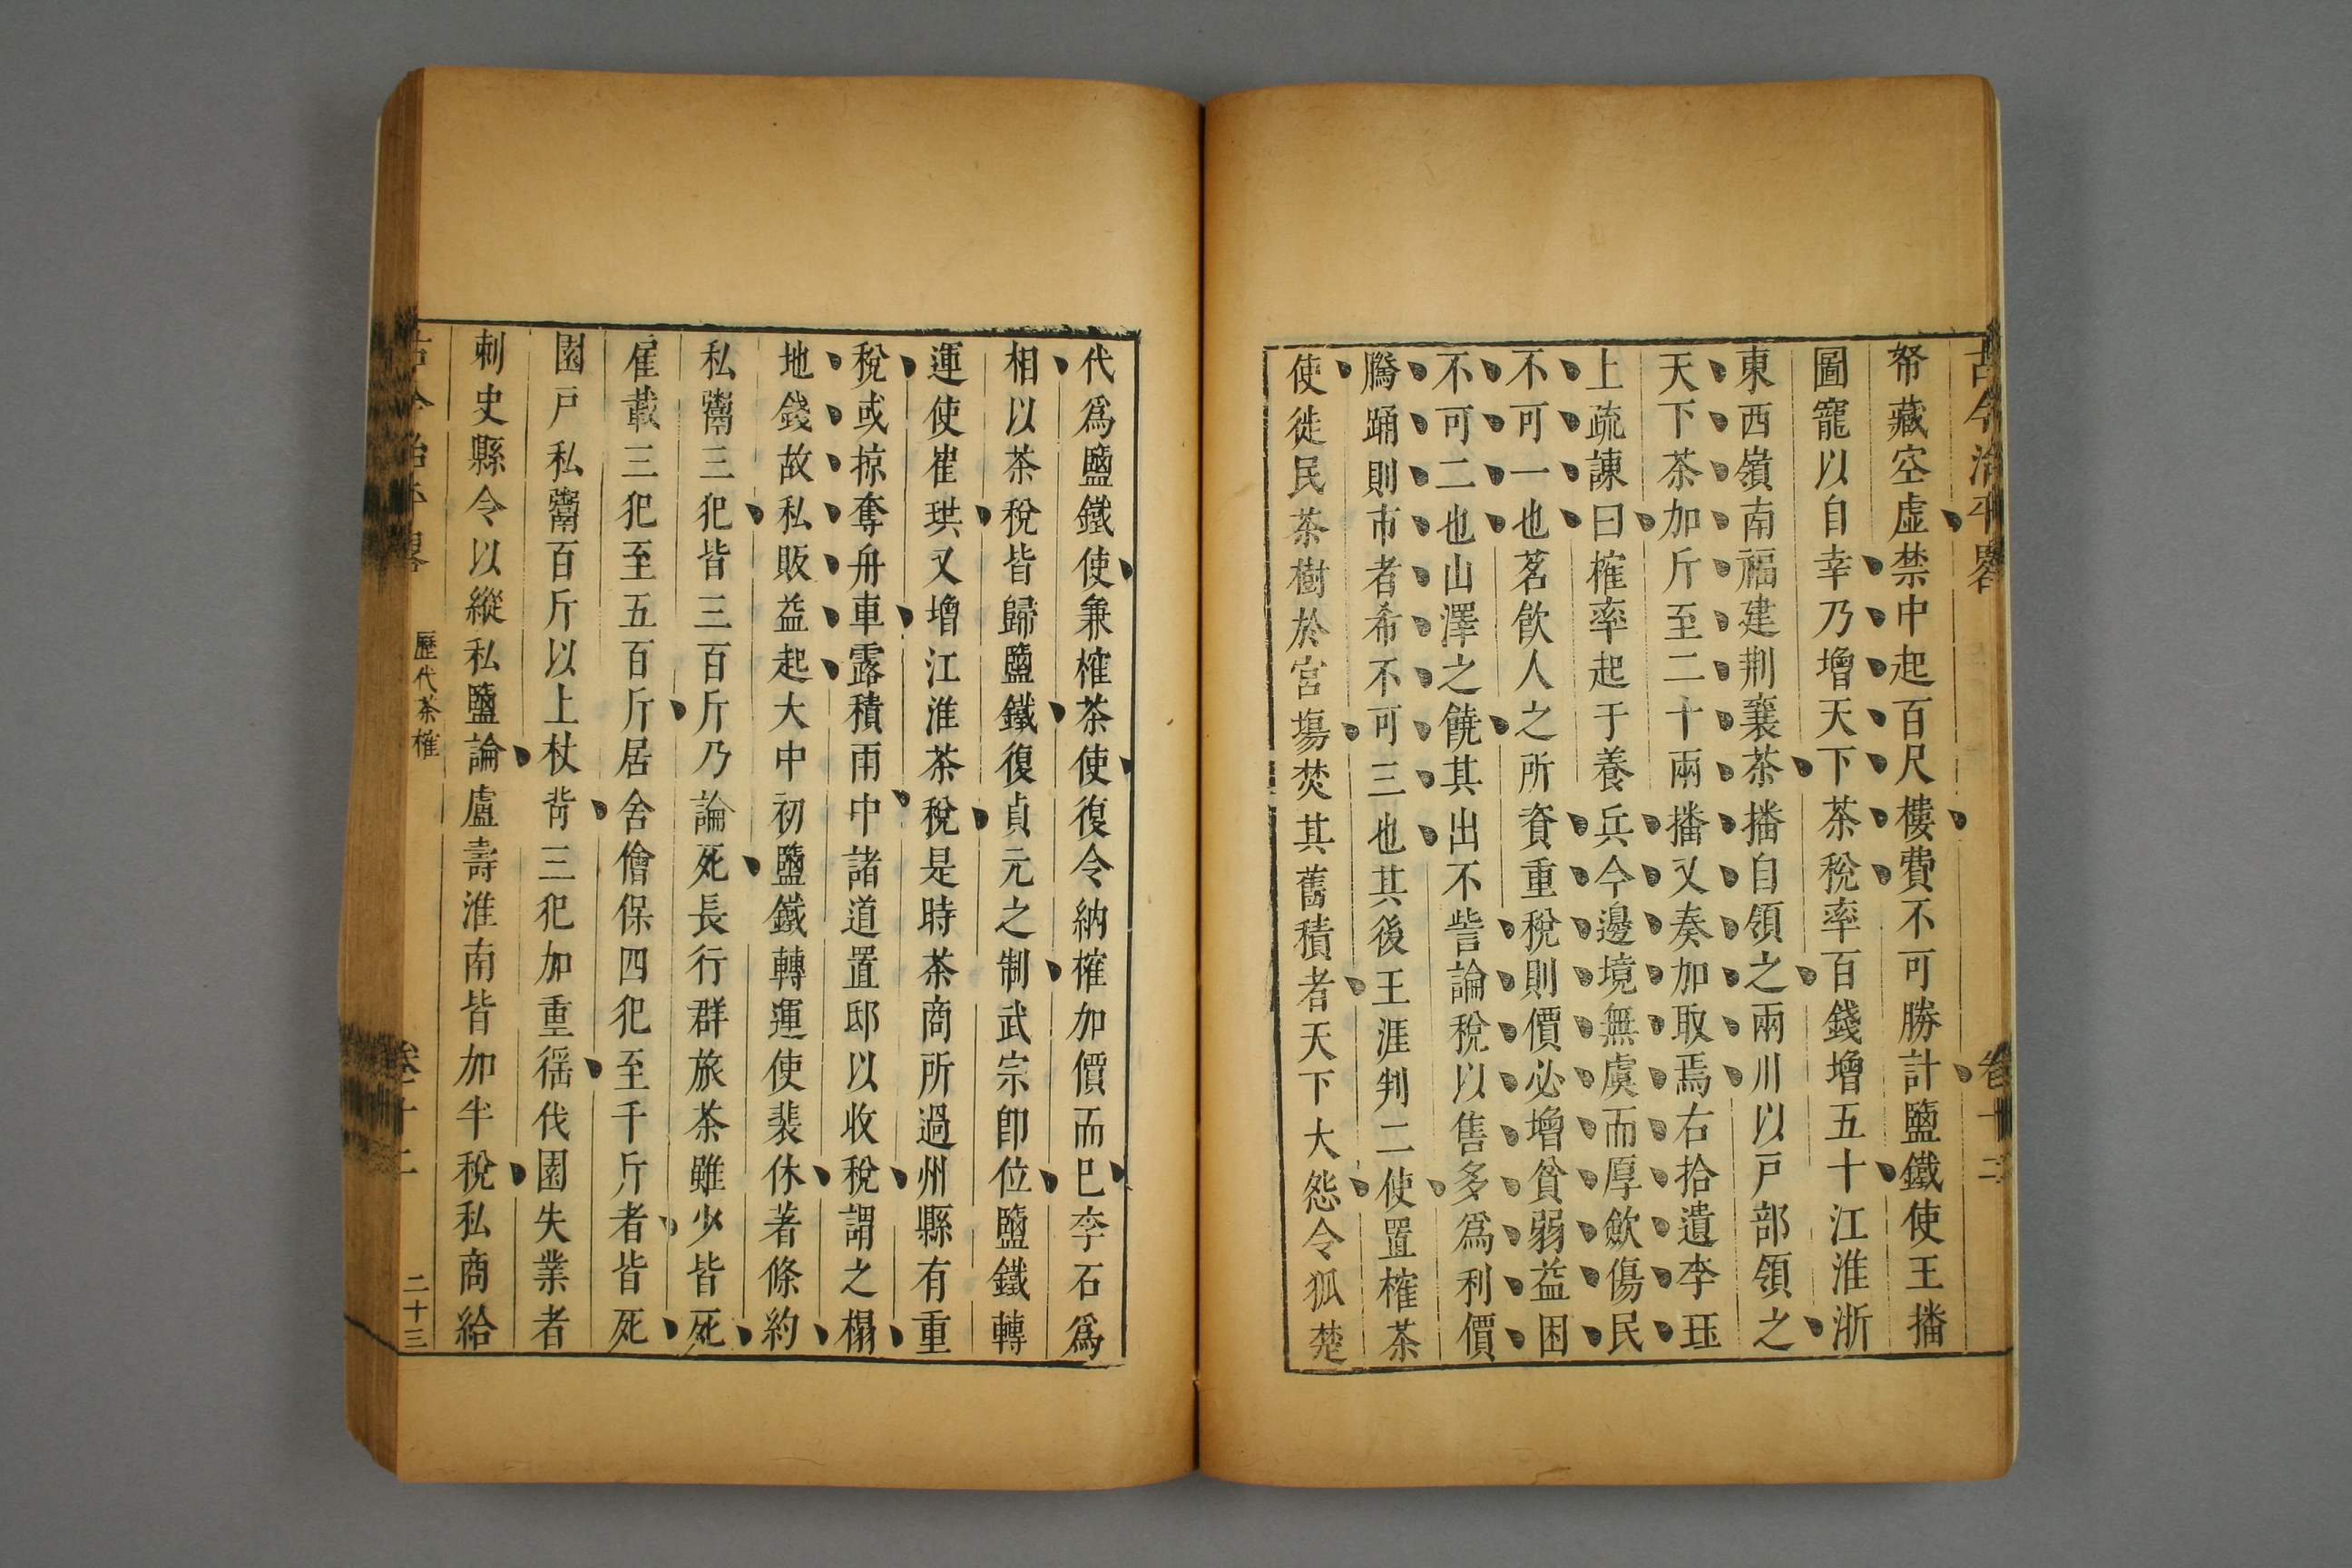 古今治平畧
卷十二
帑藏空虛禁中起百尺樓費不可勝計鹽鐵使王播
圖寵以自幸乃增天下茶稅率百錢增五十江淮浙
東西嶺南福建荆襄茶播自領之兩川以戸部領之
天下茶加斤至二十兩播又奏加取焉右拾遺李珏
上疏諫曰榷率起于養兵今邊境無虞而厚歛傷民
不可一也茗飲人之所資重稅則價必增貧弱益困
不可二也山澤之饒其出不訾論稅以售多爲利價
騰踊則市者希不可三也其後王涯判二使置榷茶
使徙民茶樹於官塲焚其舊積者天下大怨令狐楚
代爲鹽鐵使兼榷茶使復令納榷加價而已李石爲
相以茶稅皆歸鹽鐵復貞元之制武宗卽位鹽鐵轉
運使崔珙又增江淮茶稅是時茶商所過州縣有重
稅或掠奪舟車露積雨中諸道置邸以收稅謂之榻
地錢故私販益起大中初鹽鐵轉運使裴休著條約
私鬻三犯皆三百斤乃論死長行群旅茶雖少皆死
雇載三犯至五百斤居舍儈保四犯至千斤者皆死
園戸私鬻百斤以上杖背三犯加重徭伐園失業者
刺史縣令以縱私鹽論盧壽淮南皆加半稅私商給
古今治平畧
歷代茶榷
卷十二
二十三